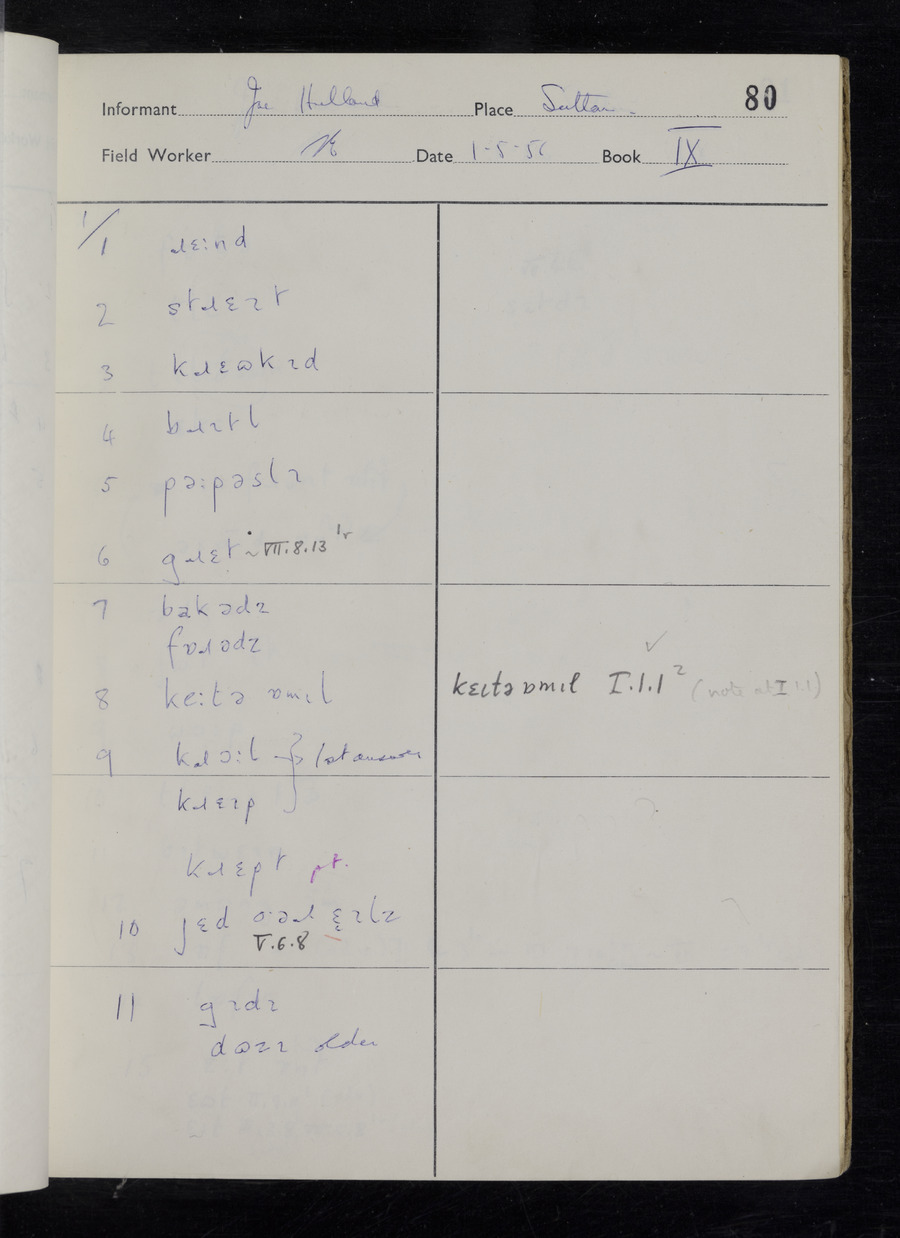 80
Informant Joe Hulland Place Sutton.
Field Worker Date 1-5-56 Book IX
1/
1 ɹɛ:nd
2 stɹɛɪt
3 kɹɛɷkɪd
4 bɹɪtl
5 pə:pəslɪ
6 gɹɛt ~ VII.8.13
7 bakədz
fɒɹədz
8 ke:tə ɒmɪl
kɛɪtə ɒmɪl I.1.1 ² (note at I.1.1)
9 kɹɔ:l } 1st answer
kɹɛɪp
kɹɛpt pt.
10 jɛd ɛɪlɪ
V.6.8
11 gɪdɪ
dɷzɪ older